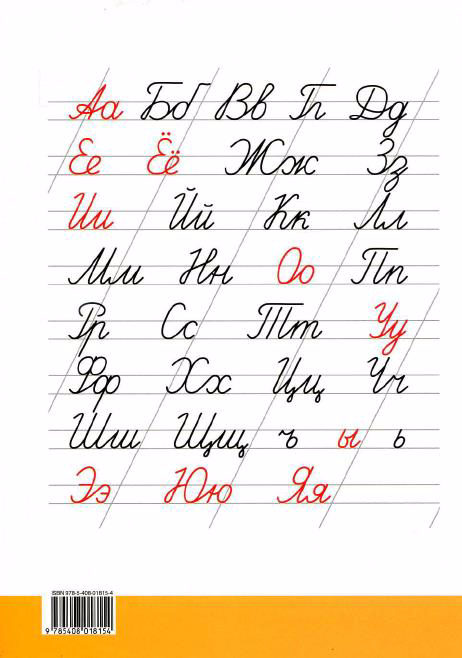 Аа Бб Вв Гг Дд
Ее Ёё Жж Зз
Ии Йй Кк Лл
Мм Нн Оо Пп
Рр Сс Тт Уу
Фф Хх Цц Чч
Шш Щщ ъ ы ь
Ээ Юю Яя
ISBN 978-5-408-01815-4
9 785408 018154